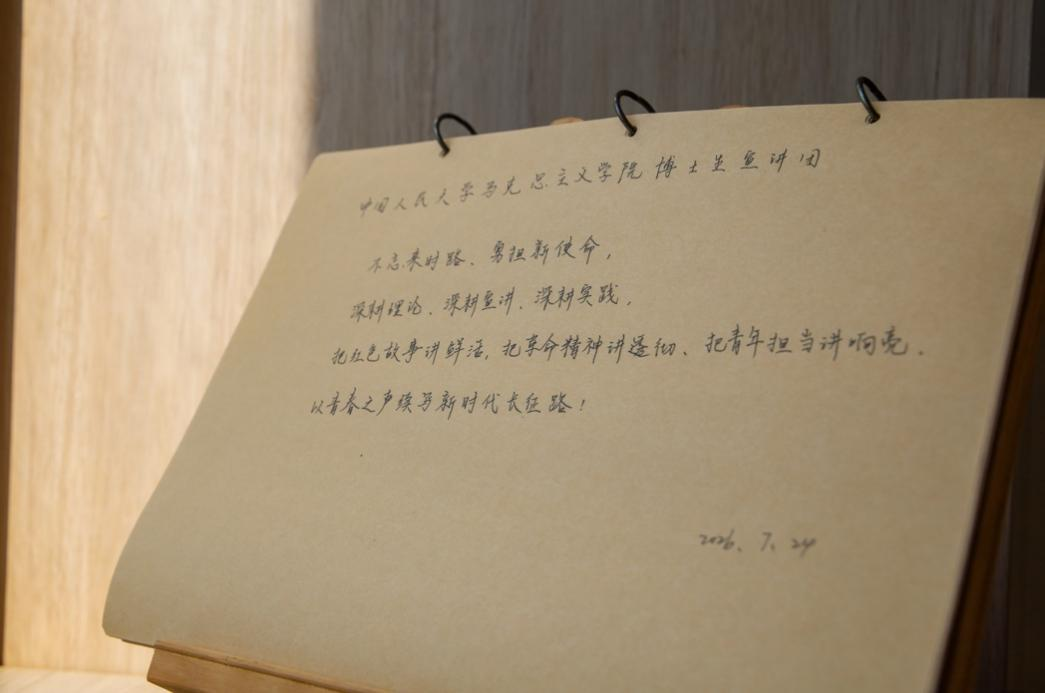 中国人民大学马克思主义学院博士生宣讲团
不忘来时路、勇担新使命，
深耕理论、深耕宣讲、深耕实践，
把红色故事讲鲜活，把革命精神讲透彻、把青年担当讲响亮，
以青春之声续写新时代长征路！
2026、7、24